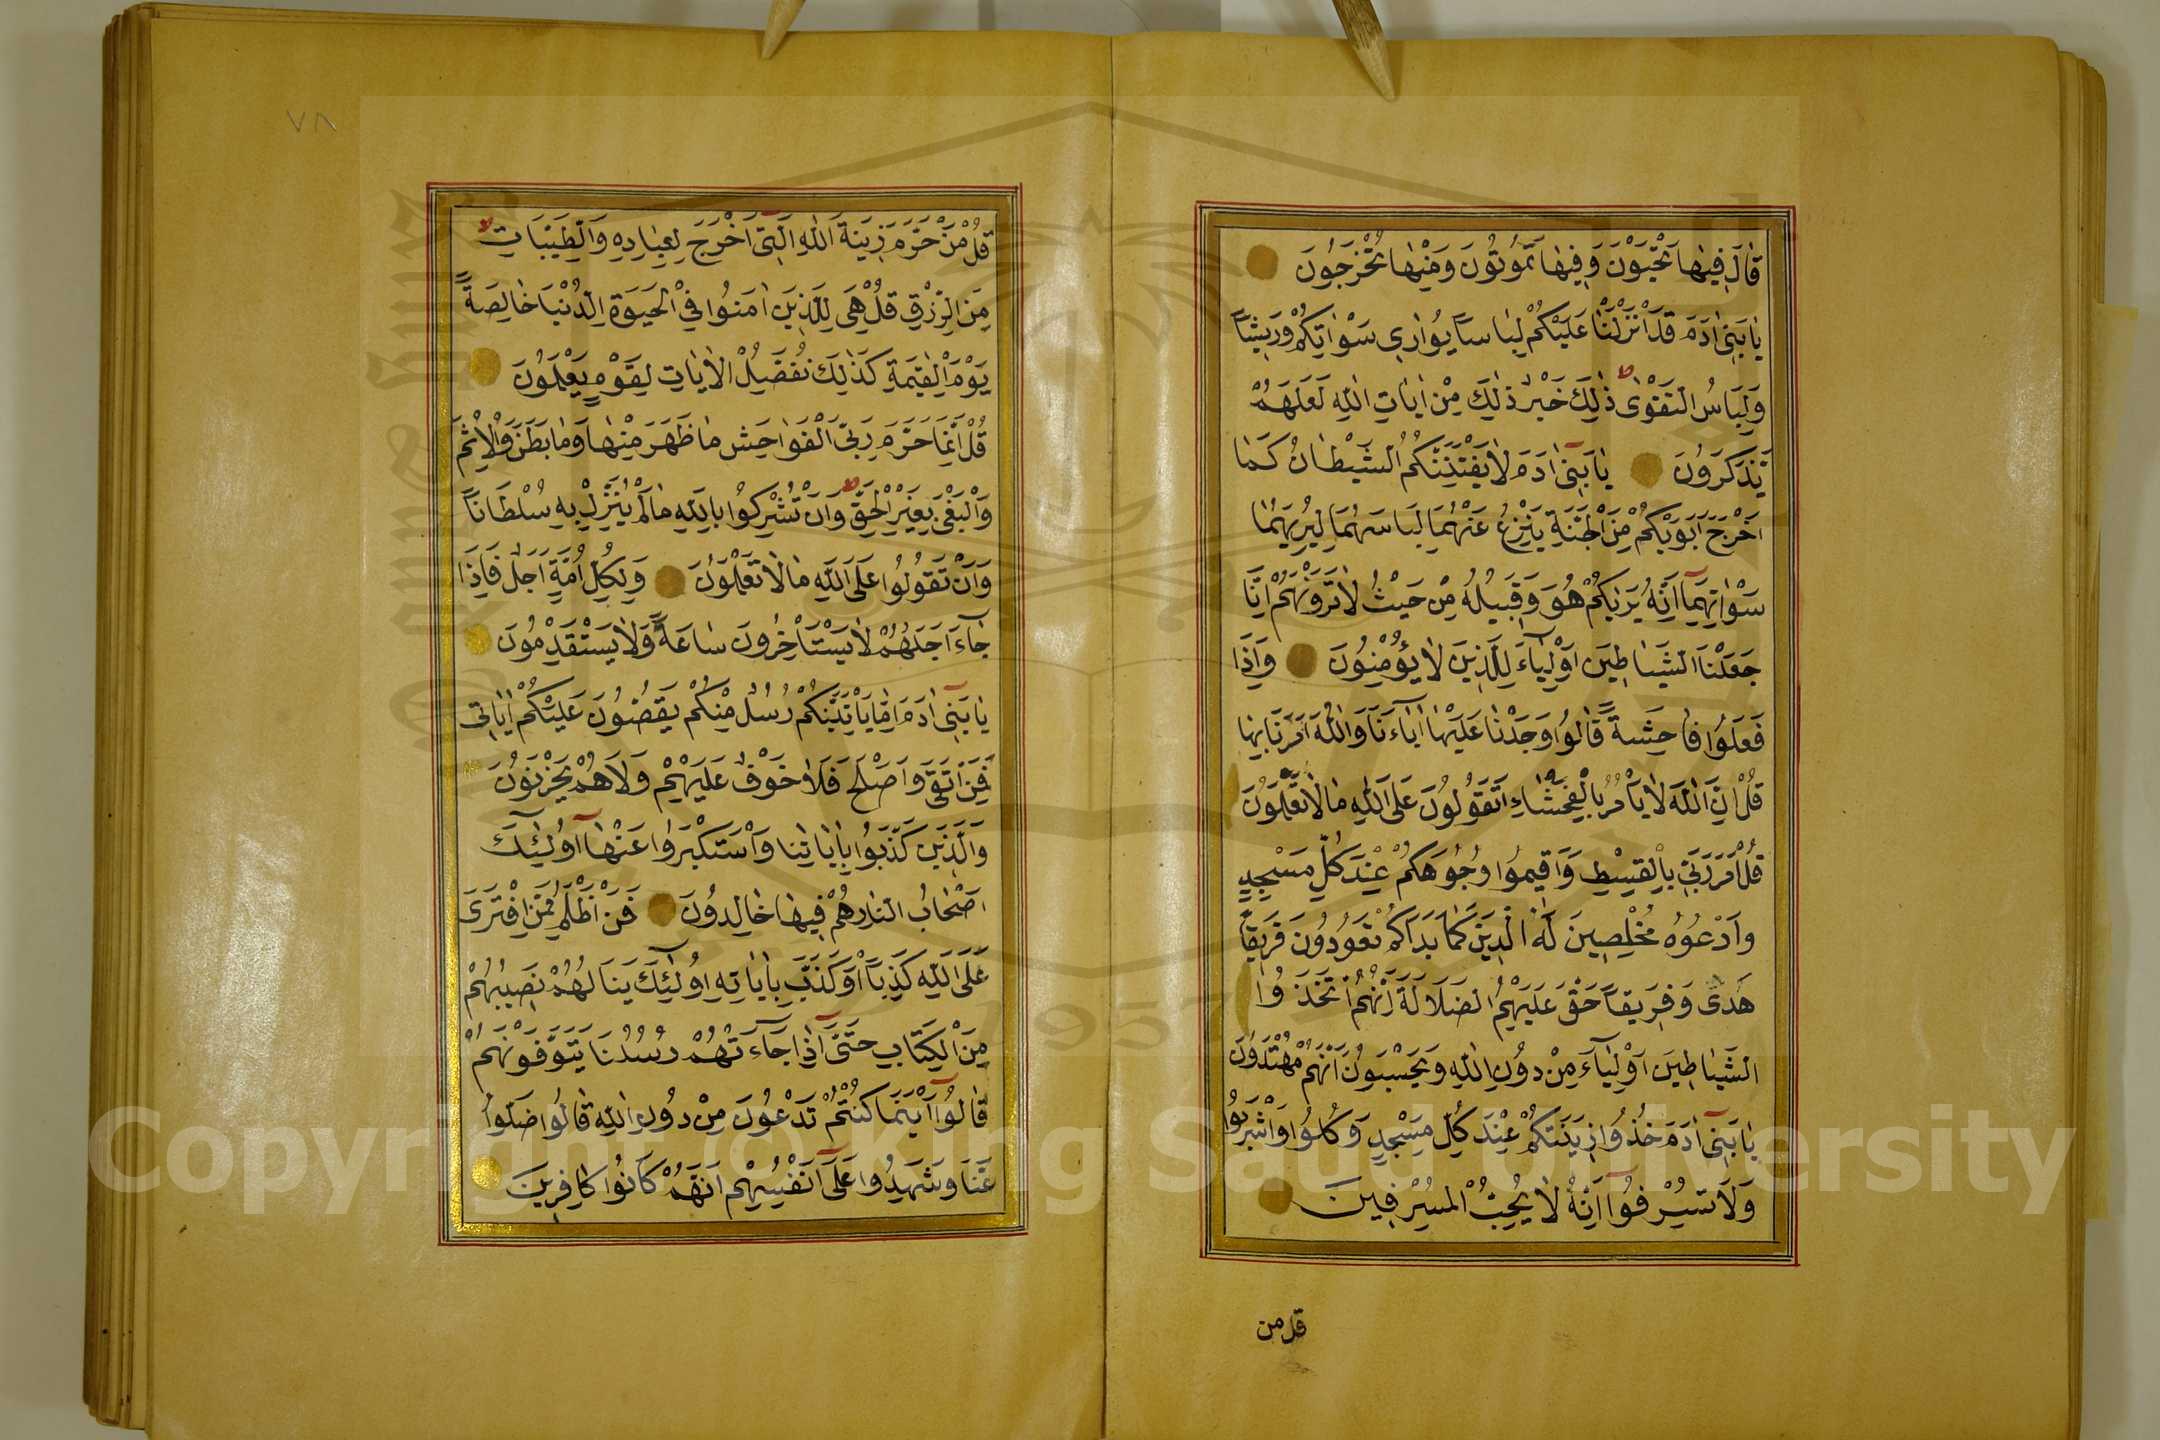 قَالَ فِيهَا تَحْيَوْنَ وَفِيهَا تَمُوتُونَ وَمِنْهَا تُخْرَجُونَ
يَابَنِى اٰدَمَ قَدْ اَنْزَلْنَا عَلَيْكُمْ لِبَاسًا يُوَارِى سَوْاٰتِكُمْ وَرِيشًا
وَلِبَاسُ التَّقْوٰى ذٰلِكَ خَيْرٌ ذٰلِكَ مِنْ اٰيَاتِ اللّٰهِ لَعَلَّهُمْ
يَذَّكَّرُونَ يَابَنِىٓ اٰدَمَ لَا يَفْتِنَنَّكُمُ الشَّيْطَانُ كَمَا
اَخْرَجَ اَبَوَيْكُمْ مِنَ الْجَنَّةِ يَنْزِعُ عَنْهُمَا لِبَاسَهُمَا لِيُرِيَهُمَا
سَوْاٰتِهِمَآ اِنَّهُ يَرٰيكُمْ هُوَ وَقَبِيلُهُ مِنْ حَيْثُ لَا تَرَوْنَهُمْ اِنَّا
جَعَلْنَا الشَّيَاطِينَ اَوْلِيَآءَ لِلَّذِينَ لَا يُؤْمِنُونَ وَاِذَا
فَعَلُوا فَاحِشَةً قَالُوا وَجَدْنَا عَلَيْهَا اٰبَآءَنَا وَاللّٰهُ اَمَرَنَا بِهَا
قُلْ اِنَّ اللّٰهَ لَا يَأْمُرُ بِالْفَحْشَاءِ اَتَقُولُونَ عَلَى اللّٰهِ مَا لَا تَعْلَمُونَ
قُلْ اَمَرَ رَبِّى بِالْقِسْطِ وَاَقِيمُوا وُجُوهَكُمْ عِنْدَ كُلِّ مَسْجِدٍ
وَادْعُوهُ مُخْلِصِينَ لَهُ الدِّينَ كَمَا بَدَاَكُمْ تَعُودُونَ فَرِيقًا
هَدٰى وَفَرِيقًا حَقَّ عَلَيْهِمُ الضَّلَالَةُ اِنَّهُمُ اتَّخَذُوا
الشَّيَاطِينَ اَوْلِيَآءَ مِنْ دُونِ اللّٰهِ وَيَحْسَبُونَ اَنَّهُمْ مُهْتَدُونَ
يَابَنِىٓ اٰدَمَ خُذُوا زِينَتَكُمْ عِنْدَ كُلِّ مَسْجِدٍ وَكُلُوا وَاشْرَبُوا
وَلَا تُسْرِفُوٓا اِنَّهُ لَا يُحِبُّ الْمُسْرِفِينَ
قل من
٧٨
قُلْ مَنْ حَرَّمَ زِينَةَ اللّٰهِ الَّتِىٓ اَخْرَجَ لِعِبَادِهِ وَالطَّيِّبَاتِ
مِنَ الرِّزْقِ قُلْ هِىَ لِلَّذِينَ اٰمَنُوا فِى الْحَيَوةِ الدُّنْيَا خَالِصَةً
يَوْمَ الْقِيٰمَةِ كَذٰلِكَ نُفَصِّلُ الْاٰيَاتِ لِقَوْمٍ يَعْلَمُونَ
قُلْ اِنَّمَا حَرَّمَ رَبِّىَ الْفَوَاحِشَ مَا ظَهَرَ مِنْهَا وَمَا بَطَنَ وَالْاِثْمَ
وَالْبَغْىَ بِغَيْرِ الْحَقِّ وَاَنْ تُشْرِكُوا بِاللّٰهِ مَا لَمْ يُنَزِّلْ بِهِ سُلْطَانًا
وَاَنْ تَقُولُوا عَلَى اللّٰهِ مَا لَا تَعْلَمُونَ وَلِكُلِّ اُمَّةٍ اَجَلٌ فَاِذَا
جَآءَ اَجَلُهُمْ لَا يَسْتَاْخِرُونَ سَاعَةً وَلَا يَسْتَقْدِمُونَ
يَابَنِىٓ اٰدَمَ اِمَّا يَاْتِيَنَّكُمْ رُسُلٌ مِنْكُمْ يَقُصُّونَ عَلَيْكُمْ اٰيَاتِى
فَمَنِ اتَّقٰى وَاَصْلَحَ فَلَا خَوْفٌ عَلَيْهِمْ وَلَا هُمْ يَحْزَنُونَ
وَالَّذِينَ كَذَّبُوا بِاٰيَاتِنَا وَاسْتَكْبَرُوا عَنْهَآ اُولٰٓئِكَ
اَصْحَابُ النَّارِ هُمْ فِيهَا خَالِدُونَ فَمَنْ اَظْلَمُ مِمَّنِ افْتَرٰى
عَلَى اللّٰهِ كَذِبًا اَوْ كَذَّبَ بِاٰيَاتِهِ اُولٰٓئِكَ يَنَالُهُمْ نَصِيبُهُمْ
مِنَ الْكِتَابِ حَتّٰىٓ اِذَا جَآءَتْهُمْ رُسُلُنَا يَتَوَفَّوْنَهُمْ
قَالُوٓا اَيْنَمَا كُنْتُمْ تَدْعُونَ مِنْ دُونِ اللّٰهِ قَالُوا ضَلُّوا
عَنَّا وَشَهِدُوا عَلٰىٓ اَنْفُسِهِمْ اَنَّهُمْ كَانُوا كَافِرِينَ
1957
Copyright © King Saud University